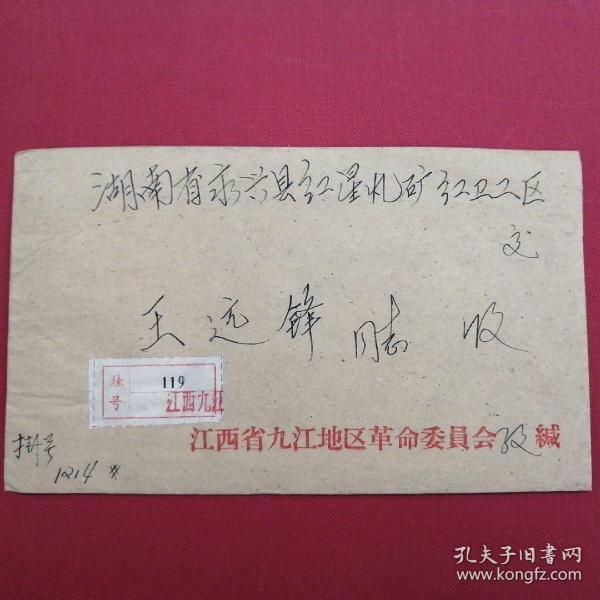 湖南省永兴县红星札矿红卫工区
交
王远锋同志 收
挂号 119
江西九江
江西省九江地区革命委員会 缄
挂号
1214
孔夫子旧书网
www.kongfz.com